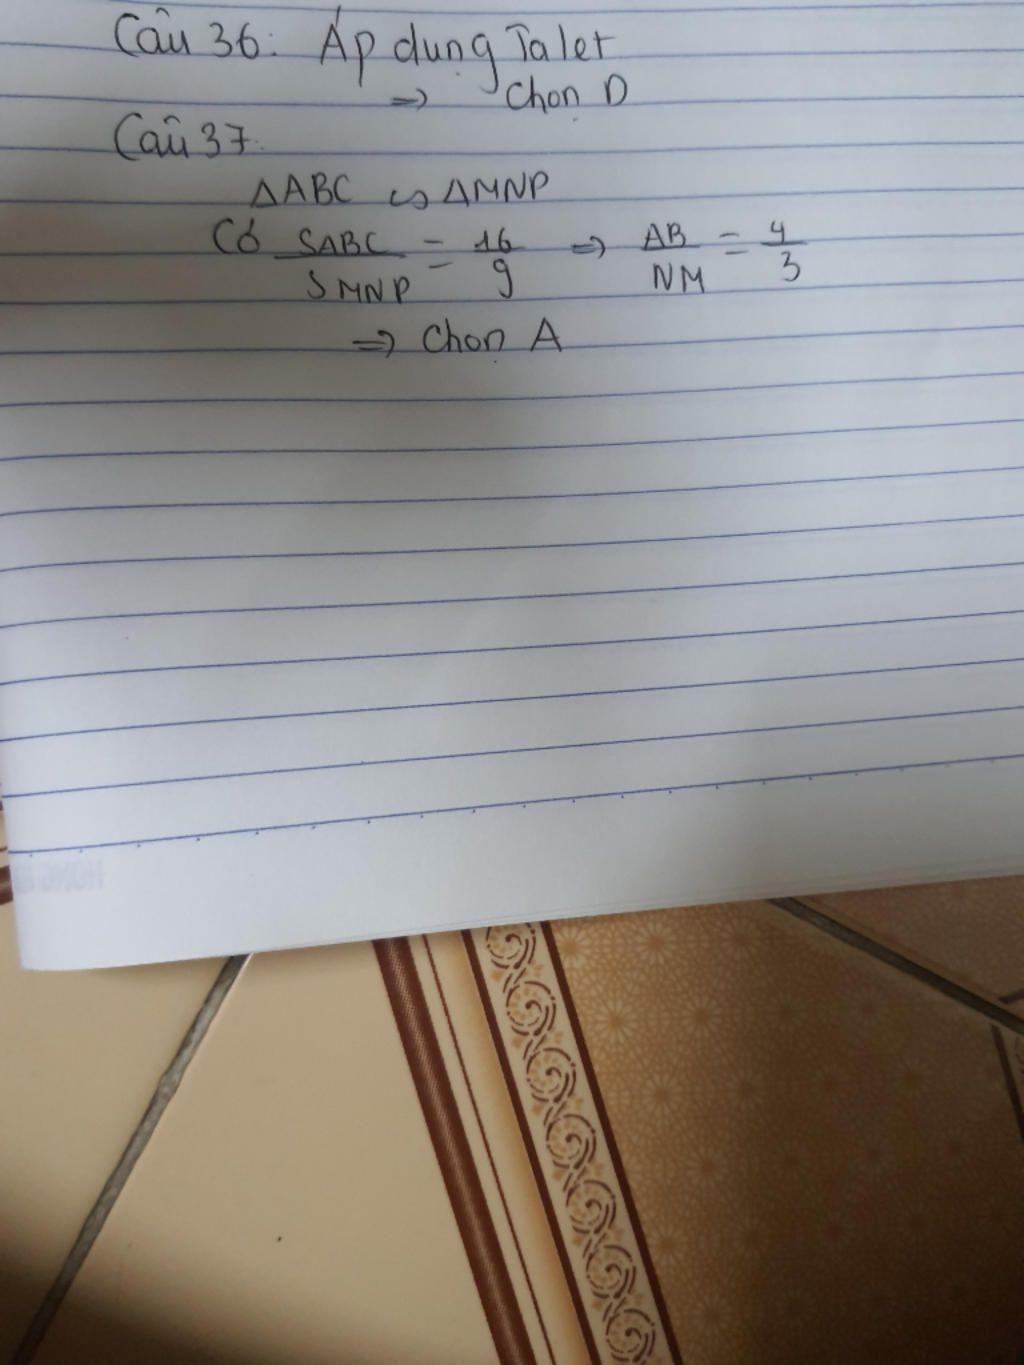 Câu 36: Áp dụng Talet
=> Chọn D
Câu 37.
ΔABC ∽ ΔMNP
Có SABC/SMNP = 16/9 => AB/NM = 4/3
=> Chọn A